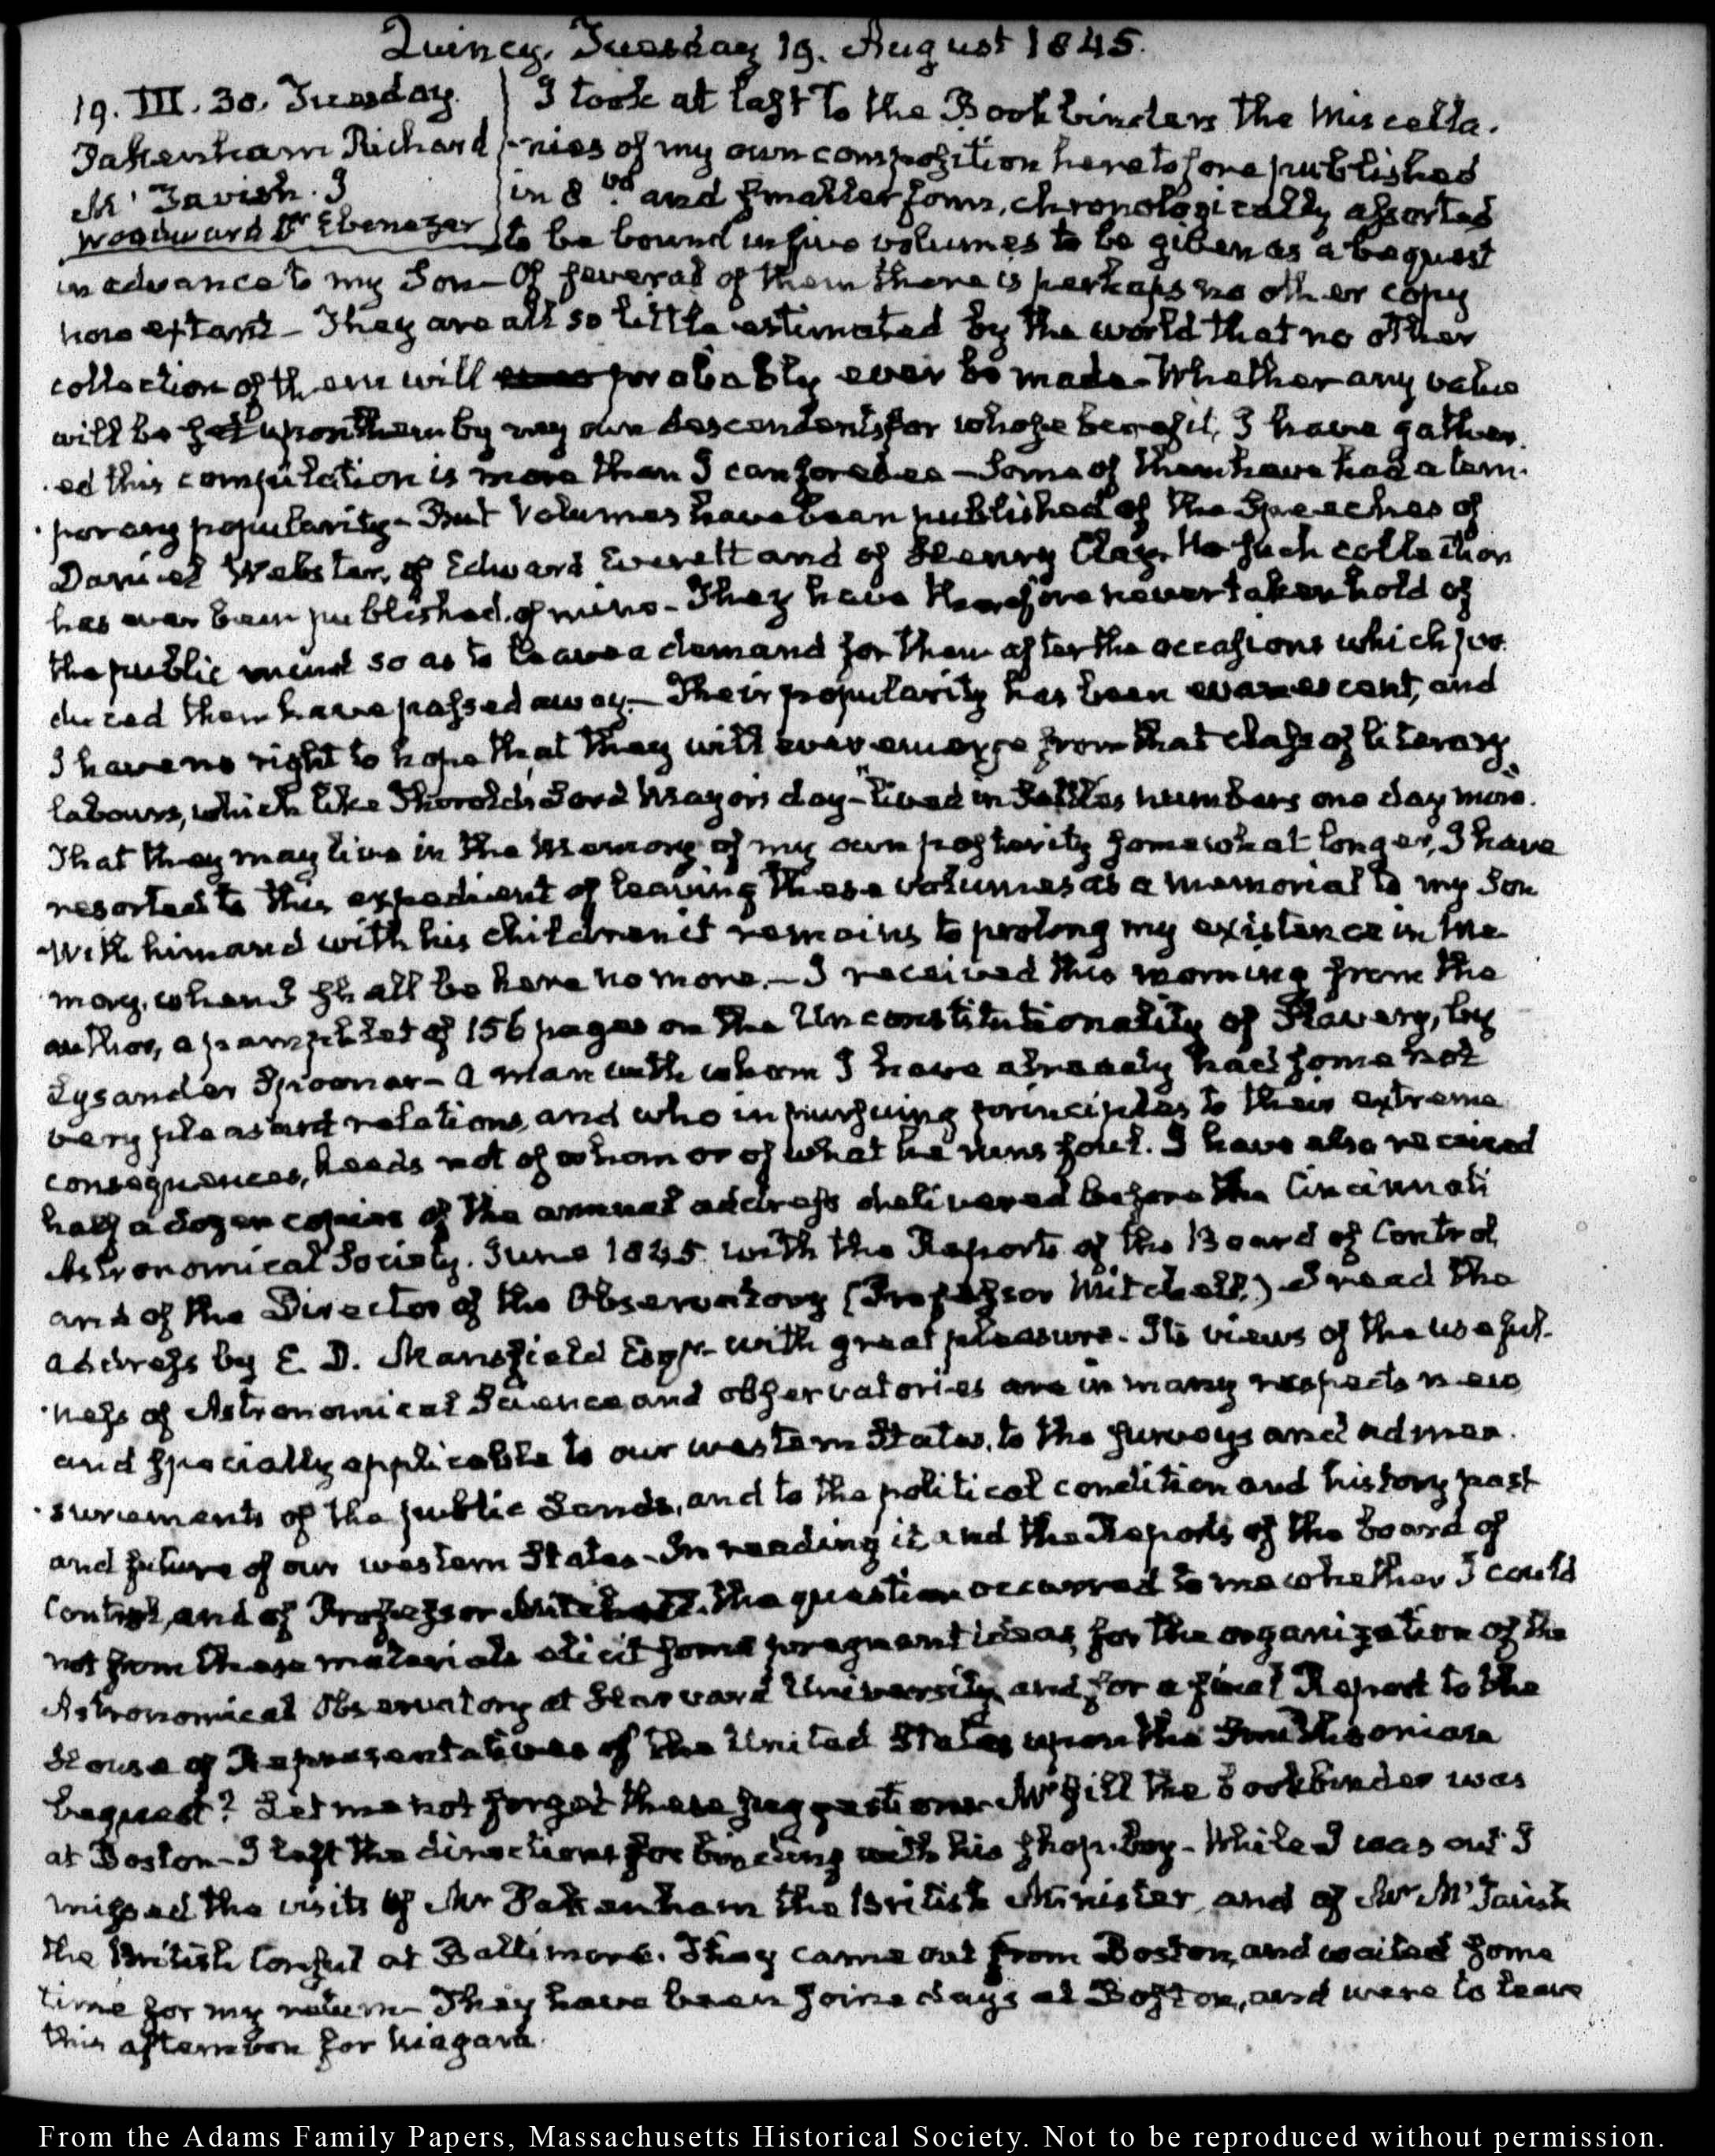 Quincy, Tuesday 19. August 1845.
19. III. 30. Tuesday.
Pakenham Richard
Mc Tavish. J
Woodward Dr Ebenezer
I took at last to the Bookbinders the Miscella-
-nies of my own composition heretofore published
in 8vo. and smaller form, chronologically assorted
to be bound in five volumes to be given as a bequest
in advance to my Son— Of several of them there is perhaps no other copy
now extant— They are all so little estimated by the world that no other
collection of them will probably ever be made— Whether any value
will be set upon them by my own descendents for whose benefit, I have gather-
-ed this compilation is more than I can foresee— Some of them have had a tem-
-porary popularity— But Volumes have been published of the Speeches of
Daniel Webster, of Edward Everett and of Henry Clay. No such collection
has ever been published, of mine— They have therefore never taken hold of
the public mind so as to leave a demand for them after the occasions which pro-
duced them have passed away.— Their popularity has been evanescent, and
I have no right to hope that they will ever emerge from that class of literary
labours, which like Thorold's Lord Mayor's day— "lived in Settles numbers one day more."
That they may live in the Memory of my own posterity somewhat longer, I have
resorted to this expedient of leaving these volumes as a memorial to my Son
With him and with his children it remains to prolong my existence in me-
mory, when I shall be here no more.— I received this morning from the
author, a pamphlet of 156 pages on the Unconstitutionality of Slavery, by
Lysander Spooner— a man with whom I have already had some not
very pleasant relations, and who in pursuing principles to their extreme
consequences, heeds not of whom or of what he runs foul. I have also received
half a dozen copies of the annual address delivered before the Cincinnati
Astronomical Society. June 1845. with the Reports of the Board of Control,
and of the Director of the Observatory (Professor Mitchell.) I read the
address by E. D. Mansfield Esqr— with great pleasure— Its views of the useful-
-ness of Astronomical Science, and observatories are in many respects new
and specially applicable to our western States, to the surveys and admea-
-surements of the public Lands, and to the political condition and history past
and future of our western States— In reading it, and the Reports of the board of
Control, and of Professor Mitchell, the question occurred to me whether I could
not from these materials elicit some pregnant ideas, for the organization of the
Astronomical Observatory at Harvard University, and for a final Report to the
House of Representatives of the United States upon the Smithsonian
bequest? Let me not forget these suggestions— Mr Gill the bookbinder was
at Boston— I left the directions for binding with his shop-boy— While I was out I
missed the visits of Mr Pakenham the British Minister, and of Mr McTavish
the British Consul at Baltimore. They came out from Boston, and waited some
time for my return— They have been some days at Boston, and were to leave
this afternoon for Niagara.
From the Adams Family Papers, Massachusetts Historical Society. Not to be reproduced without permission.